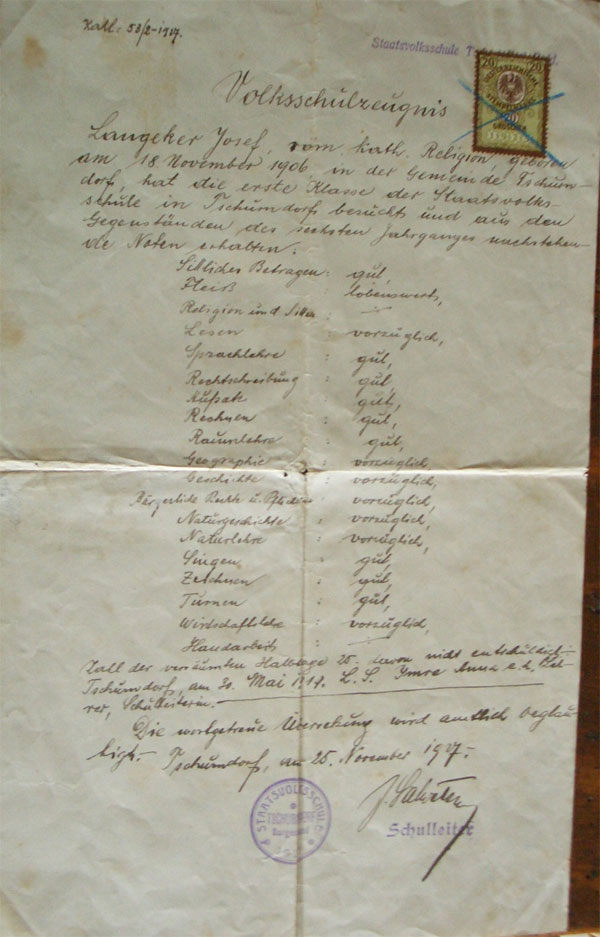 Zahl: 58/2-1927.
Staatsvolksschule
20 20
20
Volksschulzeugnis
Langeker Josef, vom kath. Religion, geboren
am 18 November 1906, in der Gemeinde Tschurn-
dorf, hat die erste Klasse der Staatsvolks-
schule in Tschurndorf besucht und aus den
Gegenständen des sechsten Jahrganges nachstehen-
de Noten erhalten:
Sittliches Betragen: gut,
Fleiß : lobenswert,
Religion und Sitten : —
Lesen : vorzüglich,
Sprachlehre : gut,
Rechtschreibung : gut,
Aufsatz : gut,
Rechnen : gut,
Raumlehre : gut,
Geographie : vorzüglich,
Geschichte : vorzüglich,
Bürgerliche Rechte u. Pflichten : vorzüglich,
Naturgeschichte : vorzüglich,
Naturlehre : vorzüglich,
Singen : gut,
Zeichnen : gut,
Turnen : gut,
Wirtschaftslehre : vorzüglich,
Handarbeit : —
Zall der versäumten Halbtage 25. davon nicht entschuldigt —
Tschurndorf, am 30. Mai 1919. L. S. Imre Anna e. h. Leh-
rer, Schulleiterin.—
Die wortgetreue Übersetzung wird amtlich beglau-
bigt.— Tschurndorf, am 25. November 1927.—
STAATSVOLKSSCHULE
TSCHURNDORF
Burgenland
Schulleiter